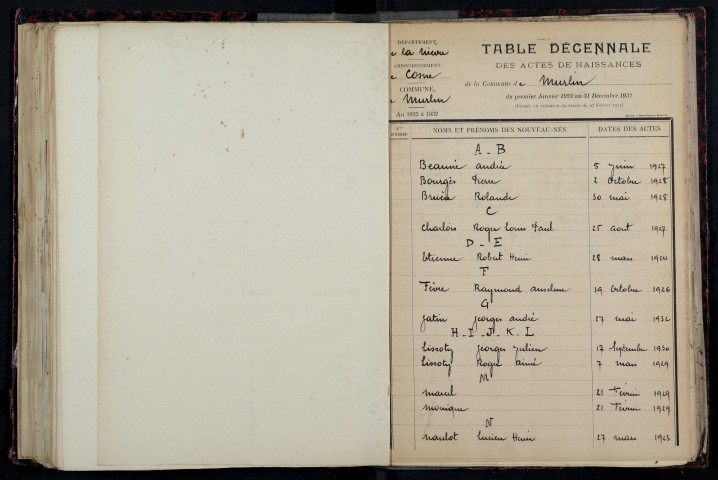 DÉPARTEMENT
de la Nièvre
ARRONDISSEMENT
de Cosne
COMMUNE
de Murlin
An 1923 à 1932
TABLE DÉCENNALE
DES ACTES DE NAISSANCES
de la Commune de Murlin
du premier Janvier 1923 au 31 Décembre 1932
NOMS ET PRÉNOMS DES NOUVEAU-NÉS DATES DES ACTES
A - B
andrée 5 juin 1927
Bourgès Pierre 2 Octobre 1928
Rolande 30 mai 1928
C
Charlois Roger Louis Paul 25 aout 1927
D - E
Etienne Robert Henri 28 mars
F
Fèvre Raymond anselme 19 Octobre 1926
G
Gatin georges andré 27 mai 1932
H - I - J - K - L
Lissoty georges Julien 17 Septembre 1930
Lissoty Roger aimé 7 mars 1929
M
marcel 21 Février 1929
monique 21 Février 1929
N
naulot Lucien Henri 27 mars 1923